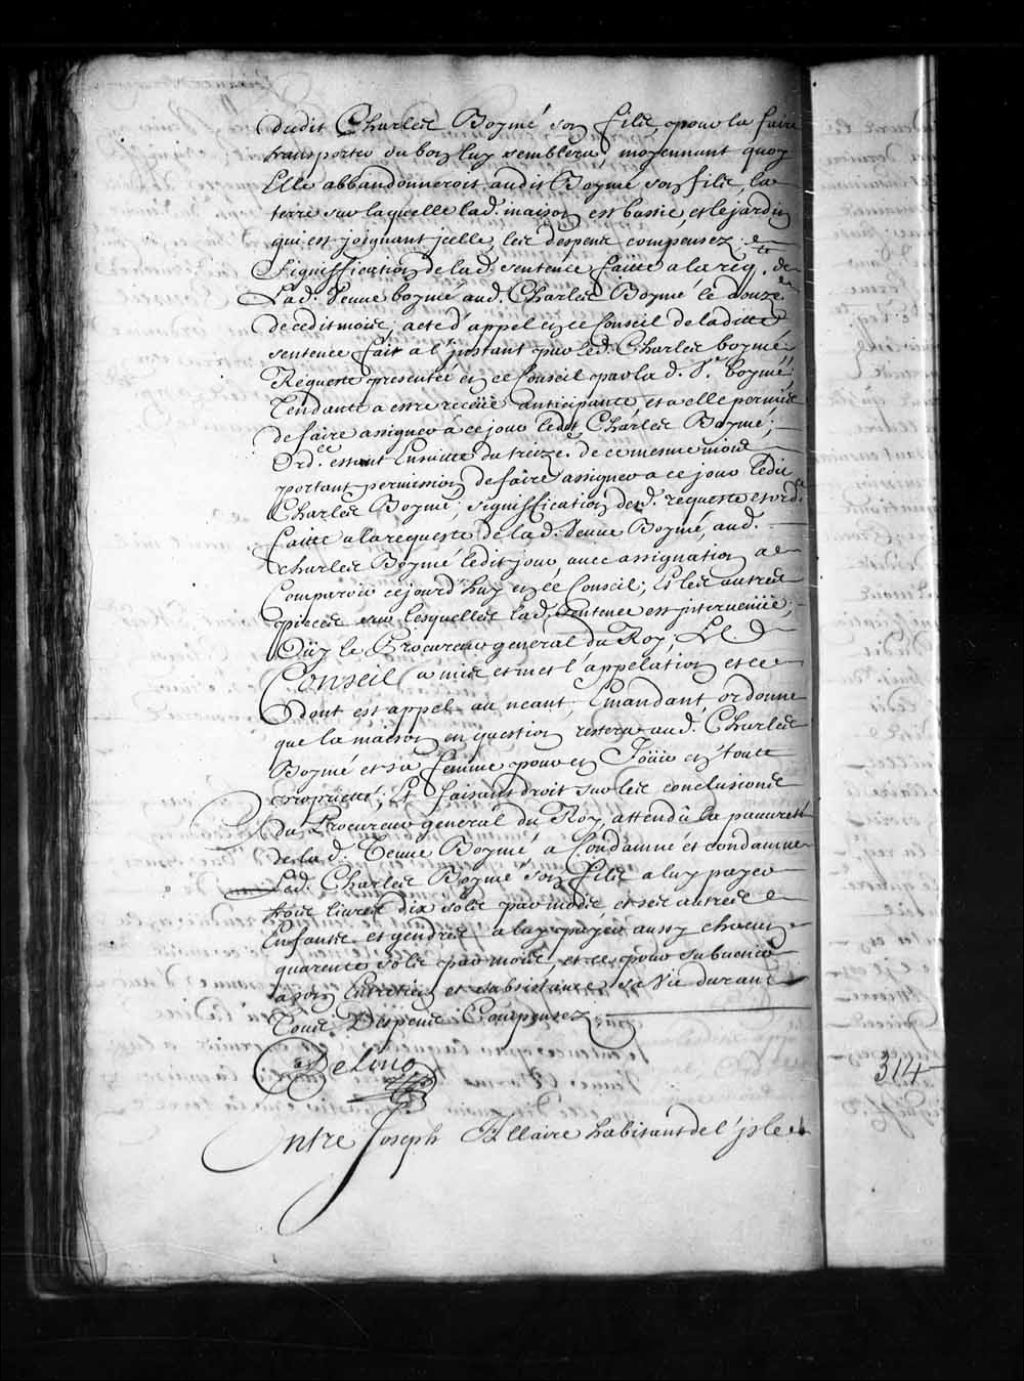 dudit Charles Boymé son fils, pour la faire
transporter ou bon luy semblera, moyennant quoy
Elle abbandonneroit audit Boymé son fils, la
terre sur laquelle lad. maison est bastie, et le jardin
qui est joignant jcelle, les despens compensez;
Signiffication de lad. sentence faitte a la req.te de
Lad. Veuve boymé aud. Charles Boymé le douze.e
de cedit mois, acte d'appel en ce Conseil de laditte
sentence fait a l'jnstant par led. Charles boymé
Requeste presentée en ce Conseil par la d. V.e boymé
Tendante a estre receüe anticipante et a elle permis
de faire assigner à ce jour ledit Charles Boymé;
Ord.ce estant Ensuitte du treize.e de ce mesme mois
portant permission de faire assigner a ce jour ledit
Charles Boymé; signiffication desd. requeste et ord.ce
faitte a la requeste de la d. Veuve Boymé, aud.
Charles Boymé ledit jour, avec assignation a
Comparoir cejourd'huy en ce Conseil; Et les autres
pieces sur lesquelles lad. sentence est jntervenüe;
Oüy le Procureur general du Roy, LE
CONSEIL a mis et met l'appelation et ce
dont est appel au neant, Emandant, ordonne
que la maison en question restera aud. Charles
Boymé et sa femme pour en Joüir en toute
proprieté; Et faisant droit sur les conclusions
du Procureur general du Roy, attendû la pauvreté
de la d. Veuve Boymé a Condamné et condamne
Led. Charles Boymé son fils a luy payer
trois livres dix sols par mois et ses autres
Enfants et gendres a luy payer aussy chacun
quarente sols par mois, et ce pour subvenir
a son Entretien et subsistance sa Vie durant
Tous Despens Compensez
Delino
Entre Joseph Illaire habitant de l'jsle
314